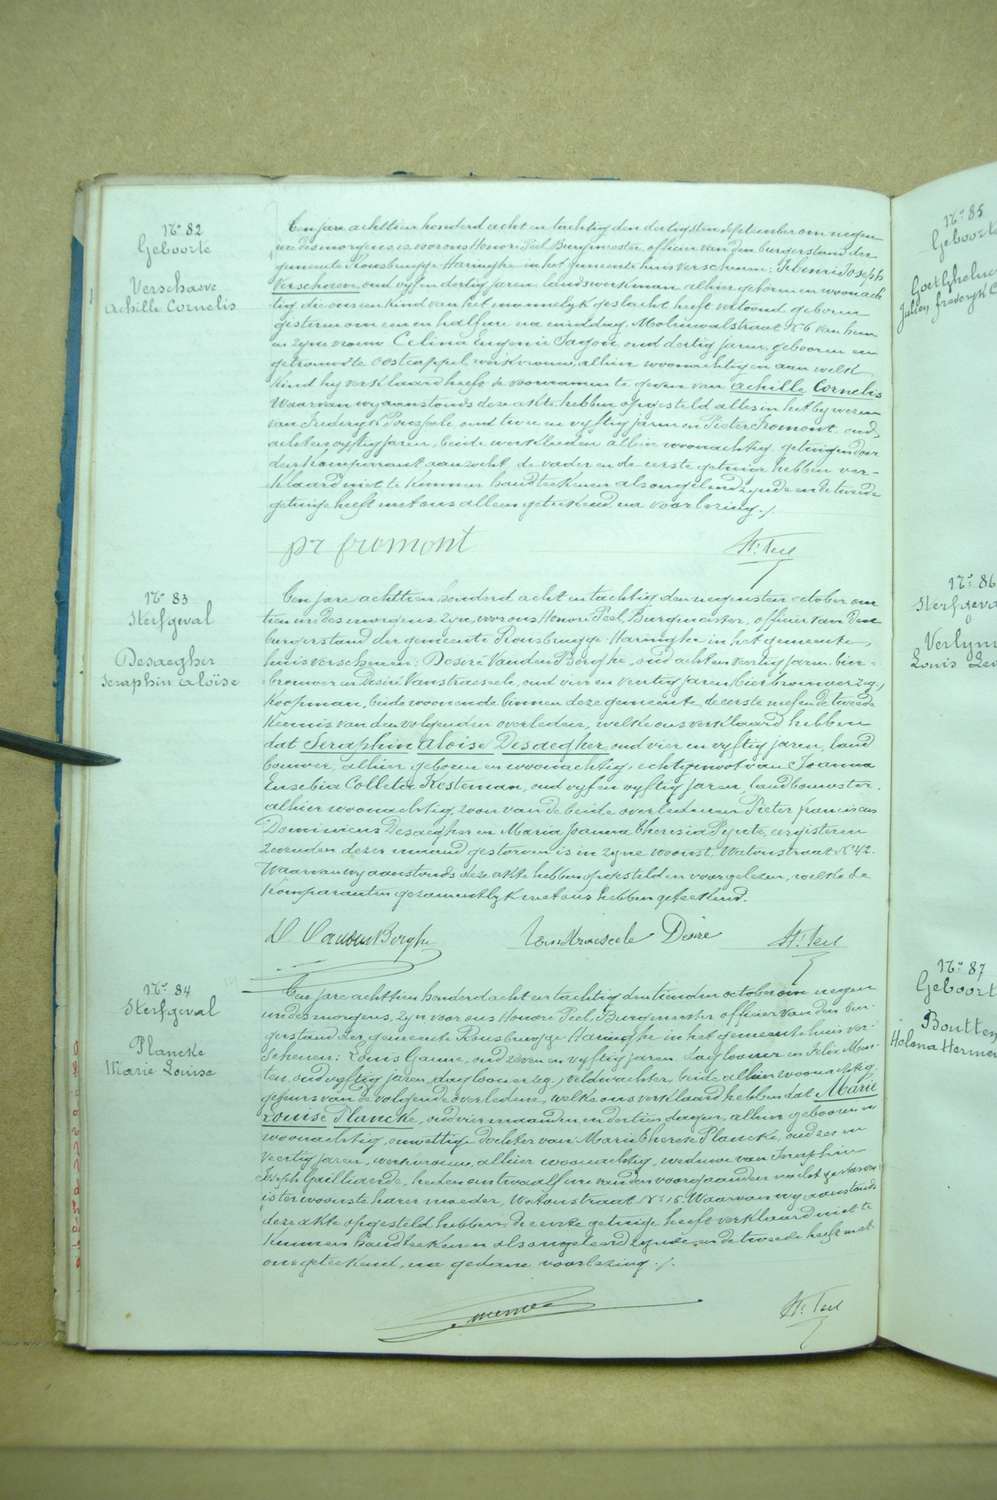 N° 82
Geboorte
Verschaeve
Achille Cornelis
Een jare achttien honderd acht en tachtig den dertigsten september om negen
ure des morgens is voor ons Honoré Peel Burgmeester, officier van den burgerstand der
gemeente Rousbrugge Haringhe in het gemeentehuis verschenen: Henri Joseph
Verschaeve, oud vijf en dertig jaren, landswerkman alhier geboren en woonach
tig die ons een kind van het mannelijk geslacht heeft vertoond, geboren
gisteren om een en half ure na middag, Molenwalstraat N° 6 van hem
en zyne vrouw Celina Eugenie, oud dertig jaren, geboren en
getrouwd te Oostcappel, werkvrouw, alhier woonachtig en aan welk
kind hy verklaard heeft de voornamen te geven van Achille Cornelis
Waarvan wy aanstonds deze akte hebben opgesteld alles in het bywezen
van Frederyk oud twee en vyftig jaren en Pieter Fromont oud
acht en vyftig jaren, beide werklieden alhier woonachtig, getuigen door
den komparant aanzocht, de vader en de eerste getuige hebben ver-
klaard niet te kunnen handteekenen als ongeleerd zynde en de tweede
getuige heeft met ons alleen geteekend, na voorlezing ./.
pr fromont H. Peel
N° 83
Sterfgeval
Desaegher
Seraphin Aloïse
Een jare achttien honderd acht en tachtig den negensten october om
tien ure des morgens, zyn voor ons Honoré Peel, Burgmeester, officier van den
burgerstand der gemeente Rousbrugge Haringhe in het gemeente
huis verschenen: Desiré Vanden Berghe, oud acht en veertig jaren, bier-
brouwer en Desiré Vanstraeseele, oud vier en veertig jaren, bierbrouwer zeg,
koopman, beide woonende binnen deze gemeente, de eerste neef en de tweede
kennis van den volgenden overleden, welke ons verklaard hebben
dat Seraphin Aloise Desaegher, oud vier en vyftig jaren, land
bouwer, alhier geboren en woonachtig, echtgenoot van Joanna
Eusebia Colleta Kesteman, oud vyf en vyftig jaren, landbouwster,
alhier woonachtig, zoon van de beide overledenen Pieter Franciscus
Dominicus Desaegher en Maria Joanna Theresia Pyote, eergisteren
zevenden dezer maand gestorven is in zyne woonst, Watoustraat N° 42.
Waarvan wy aanstonds deze akte hebben opgesteld en voorgelezen, welke de
komparanten gezamentlyk met ons hebben geteekend.
D Vanden Berghe Vanstraeseele Désiré H. Peel
N° 84
Sterfgeval
Plancke
Marie Louise
Een jare achttien honderd acht en tachtig den tienden october om negen
ure des morgens, zyn voor ons Honoré Peel, Burgmeester officier van den bur-
gerstand der gemeente Rousbrugge Haringhe in het gemeentehuis ver-
schenen: Louis Ganne, oud zeven en vyftig jaren dagloner en Felix
oud vyftig jaren, dagloner zeg, veldwachter, beide alhier woonachtig,
gebuers van de volgende overledene, welke ons verklaard hebben dat Marie
Louise Plancke, oud vier maanden en dertien dagen, alhier geboren en
woonachtig, onwettige dochter van Marie Therese Plancke, oud zes en
veertig jaren, werkvrouw, alhier woonachtig, weduwe van Seraphin
Joseph Gailliaerde, heden om twaalf ure van den voorgaanden nacht gestorven
is ter woonste harer moeder, Watoustraat N° 15. Waarvan wy aanstonds
deze akte opgesteld hebben, de eerste getuige heeft verklaard niet te
kunnen handteekenen als ongeleerd zynde, en de tweede heeft met
ons geteekend, na gedane voorlezing ./.
H. Peel
N° 85
Geboorte
Goetghelu
Julien Frederyk C
N° 86
Sterfgeva
Verlyn
Louis Leo
N° 87
Geboort
Boutten
Helena Hermen